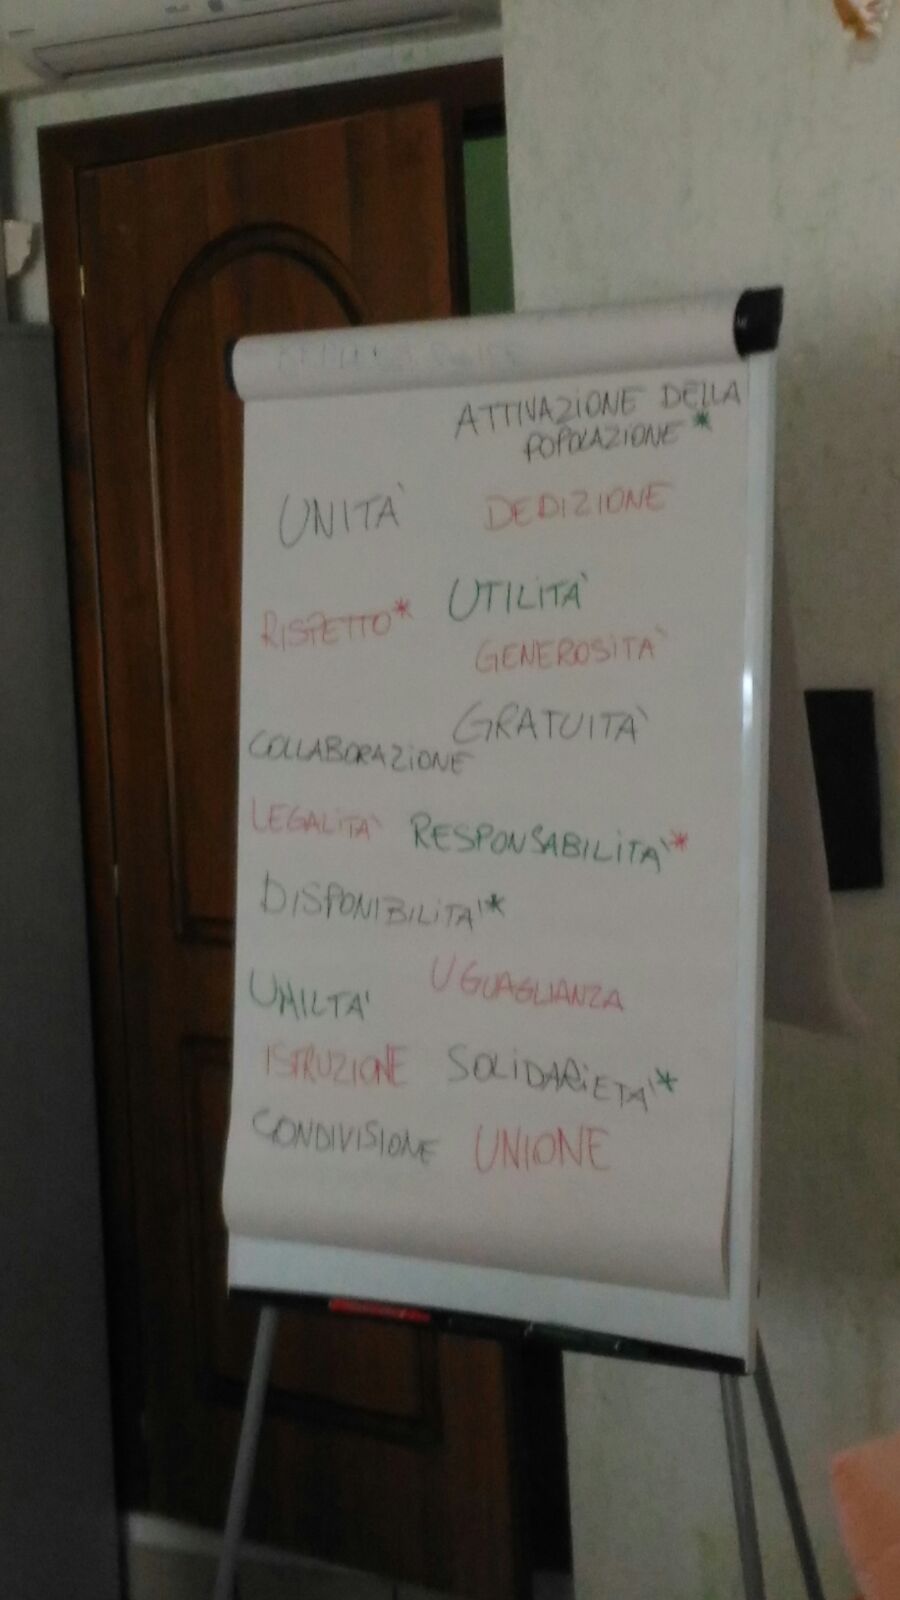 ATTIVAZIONE DELLA
POPOLAZIONE*
UNITÀ
DEDIZIONE
RISPETTO*
UTILITÀ
GENEROSITÀ
GRATUITÀ
COLLABORAZIONE
LEGALITÀ
RESPONSABILITÀ*
DISPONIBILITÀ*
UMILTA'
UGUAGLIANZA
ISTRUZIONE
SOLIDARIETÀ*
CONDIVISIONE
UNIONE